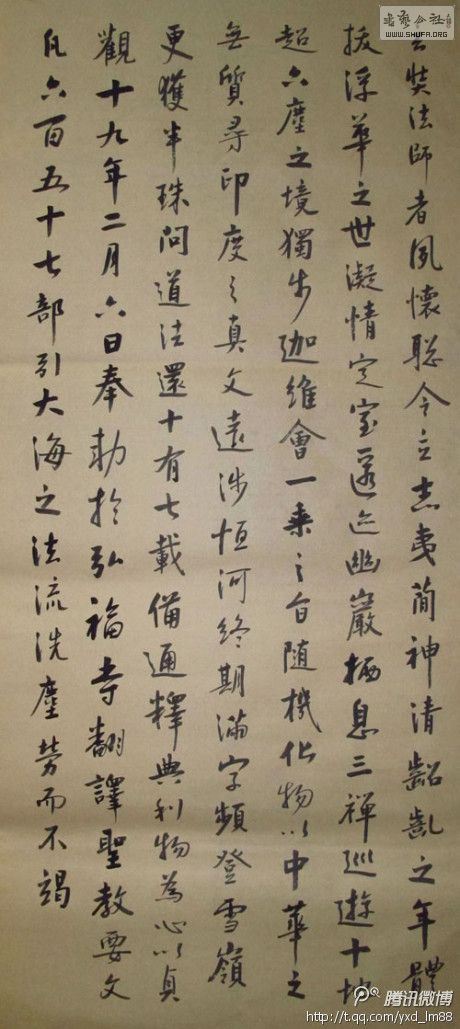 玄奘法師者夙懷聡令立志夷簡神清齠齔之年體
拔浮華之世凝情定室匿迹幽巖栖息三禪巡遊十地
超六塵之境獨步迦維會一乘之旨随機化物以中華之
無質尋印度之真文遠涉恒河終期滿字頻登雪嶺
更獲半珠問道法還十有七載備通釋典利物為心以貞
觀十九年二月六日奉勑於弘福寺翻譯聖教要文
凡六百五十七部引大海之法流洗塵勞而不竭
书艺公社
WWW.SHUFA.ORG.CN
腾讯微博
http://t.qq.com/yxd_lm88